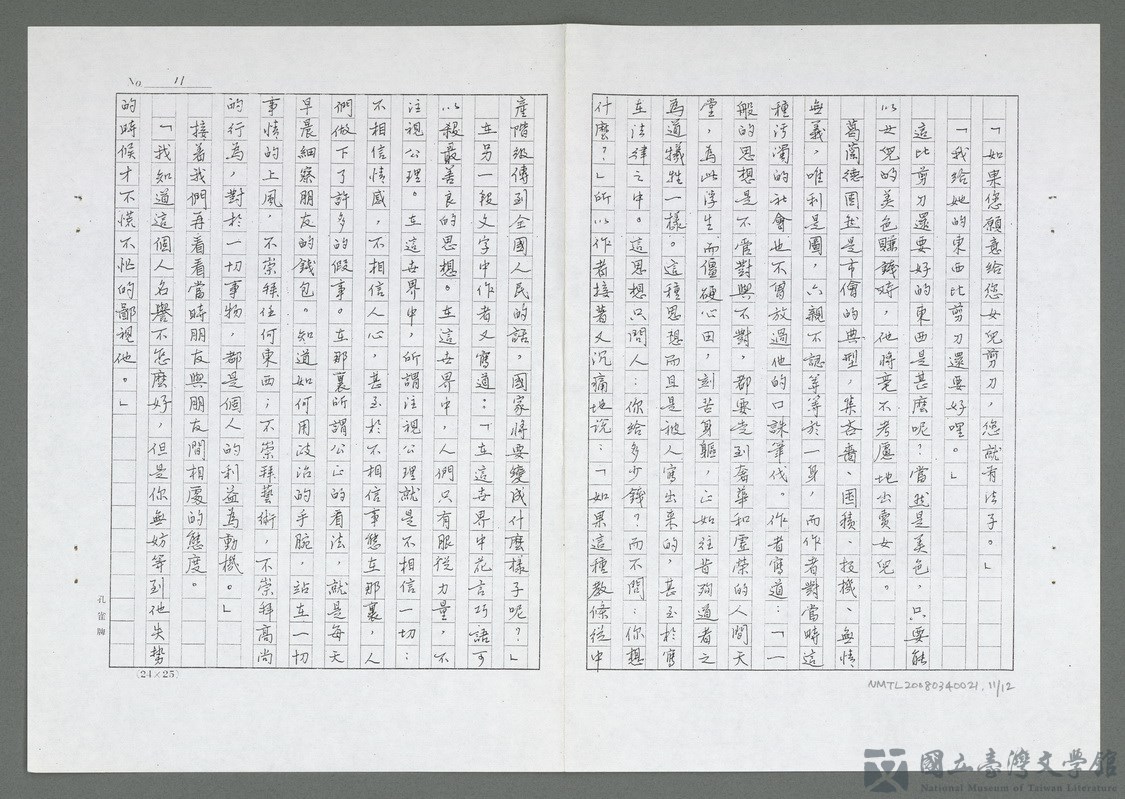 「如果您願意給您女兒剪刀，您就有法子。」
「我給她的東西比剪刀還要好哩。」
這比剪刀還要好的東西是甚麽呢？當然是美色，只要能
以女兒的美色賺錢時，他將毫不考慮地出賣女兒。
葛蘭德固然是市儈的典型，集吝嗇、囤積、投機、無情
無義，唯利是圖，六親不認等等於一身，而作者對當時這
種污濁的社會也不曾放過他的口誅筆伐。作者寫道：「一
般的思想是不管對與不對，都要走到奢華和虛榮的人間天
堂，為此浮生而僵硬心田，刻苦身軀，正如往昔殉道者之
為道犠牲一樣。這種思想而且是被人寫出来的，甚至於寫
在法律之中。這思想只問人：你給多少錢？而不問：你想
什麽？」所以作者接著又沉痛地说：「如果這種教條從中
產階級傳到全國人民的話，國家將要變成什麽樣子呢？」
在另一段文字中作者又寫道：「在這世界中花言巧語可
以殺最善良的思想。在這世界中，人們只有服從力量，不
注視公理。在這世界中，所謂注視公理就是不相信一切：
不相信情感，不相信人心，甚至於不相信事態在那裏，人
們做下了許多的假事。在那裏所謂公正的看法，就是每天
早晨細察朋友的錢包。知道如何用政治的手腕，站在一切
事情的上風，不崇拜任何東西；不崇拜藝術，不崇拜高尚
的行為，對於一切事物，都是個人的利益為動機。」
接着我們再看看當時朋友與朋友間相處的態度。
「我知道這個人名譽不怎麽好，但是你無妨等到他失勢
的時候才不慌不忙的鄙視他。」
No 11
(24×25)
孔雀牌
NMTL20080340021.11/12
國立臺灣文學館
National Museum of Taiwan Literature